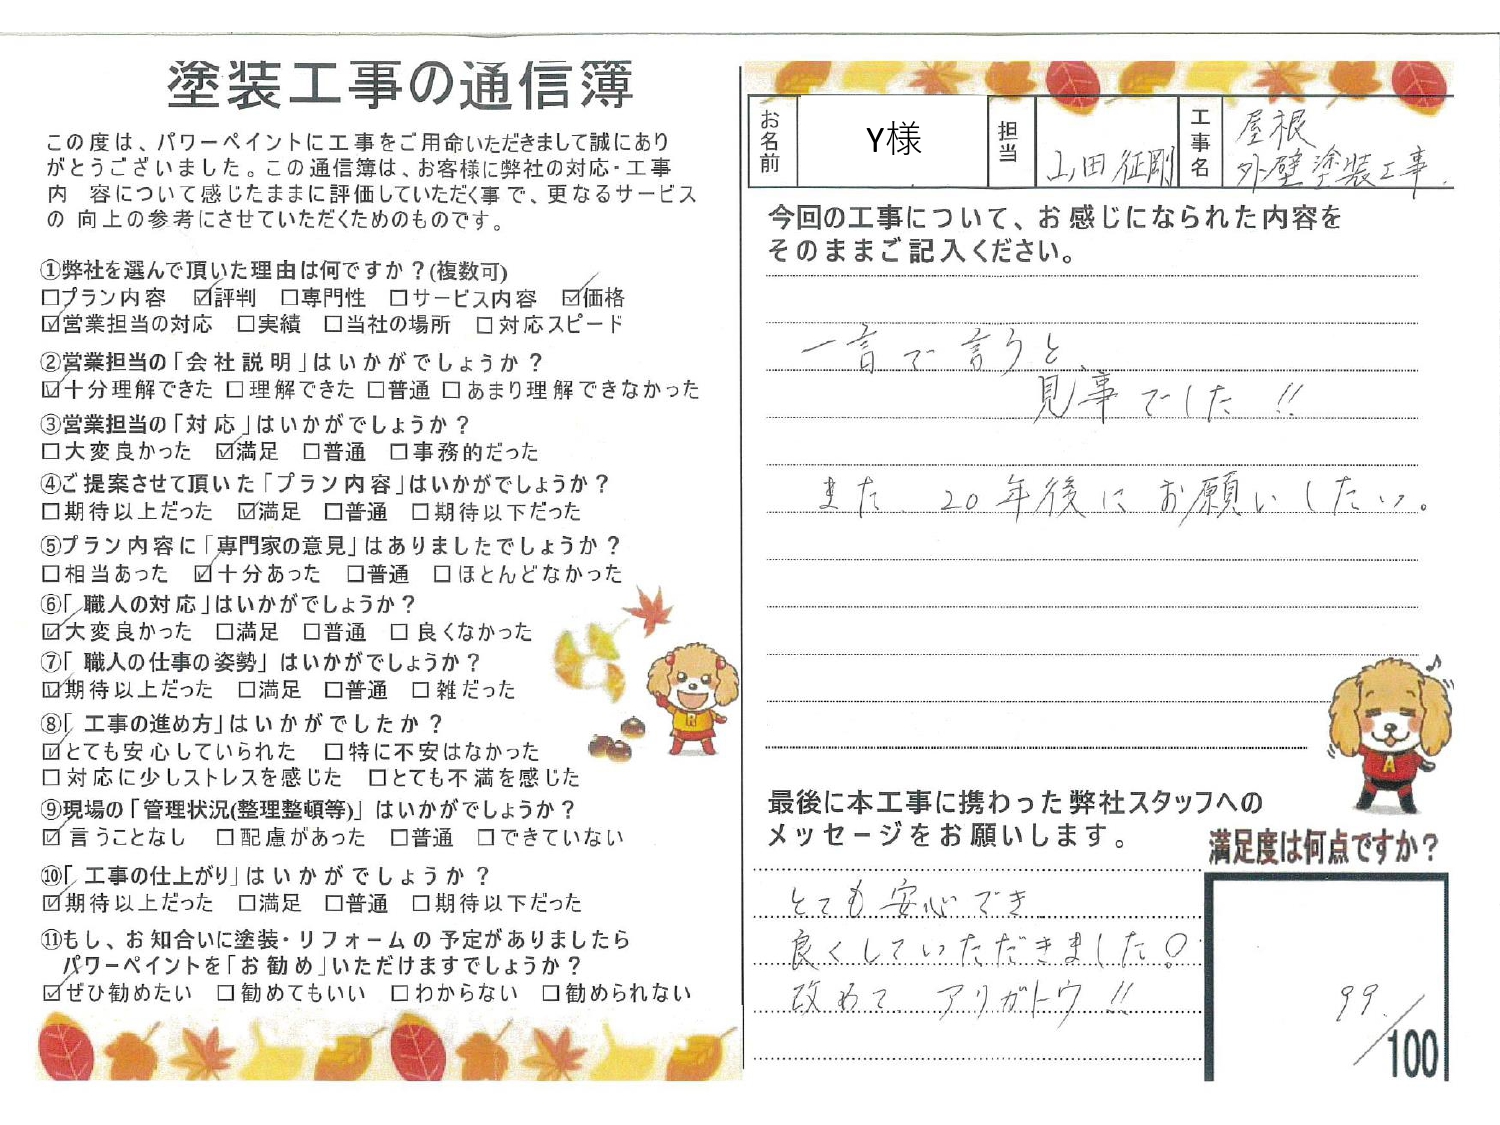 塗装工事の通信簿
この度は、パワーペイントに工事をご用命いただきまして誠にあり
がとうございました。この通信簿は、お客様に弊社の対応・工事
内 容について感じたままに評価していただく事で、更なるサービス
の 向上の参考にさせていただくためのものです。
①弊社を選んで頂いた理由は何ですか？(複数可)
□プラン内容 ☑評判 □専門性 □サービス内容 ☑価格
☑営業担当の対応 □実績 □当社の場所 □対応スピード
②営業担当の「会社説明」はいかがでしょうか？
☑十分理解できた □理解できた □普通 □あまり理解できなかった
③営業担当の「対応」はいかがでしょうか？
□大変良かった ☑満足 □普通 □事務的だった
④ご提案させて頂いた「プラン内容」はいかがでしょうか？
□期待以上だった ☑満足 □普通 □期待以下だった
⑤プラン内容に「専門家の意見」はありましたでしょうか？
□相当あった ☑十分あった □普通 □ほとんどなかった
⑥「 職人の対応」はいかがでしょうか？
☑大変良かった □満足 □普通 □良くなかった
⑦「 職人の仕事の姿勢」はいかがでしょうか？
☑期待以上だった □満足 □普通 □雑だった
⑧「 工事の進め方」はいかがでしたか？
☑とても安心していられた □特に不安はなかった
□対応に少しストレスを感じた □とても不満を感じた
⑨現場の「管理状況(整理整頓等)」はいかがでしょうか？
☑言うことなし □配慮があった □普通 □できていない
⑩「 工事の仕上がり」はいかがでしょうか？
☑期待以上だった □満足 □普通 □期待以下だった
⑪もし、お知合いに塗装・リフォームの予定がありましたら
パワーペイントを「お勧め」いただけますでしょうか？
☑ぜひ勧めたい □勧めてもいい □わからない □勧められない
お名前 Y様 担当 山田征剛 工事名 屋根
外壁塗装工事.
今回の工事について、お感じになられた内容を
そのままご記入ください。
一言で言うと、
見事でした!!
また 20年後にお願いしたい。
最後に本工事に携わった弊社スタッフへの
メッセージをお願いします。
とても安心でき
良くしていただきました!
改めて アリガトウ!!
満足度は何点ですか？
99/100
A